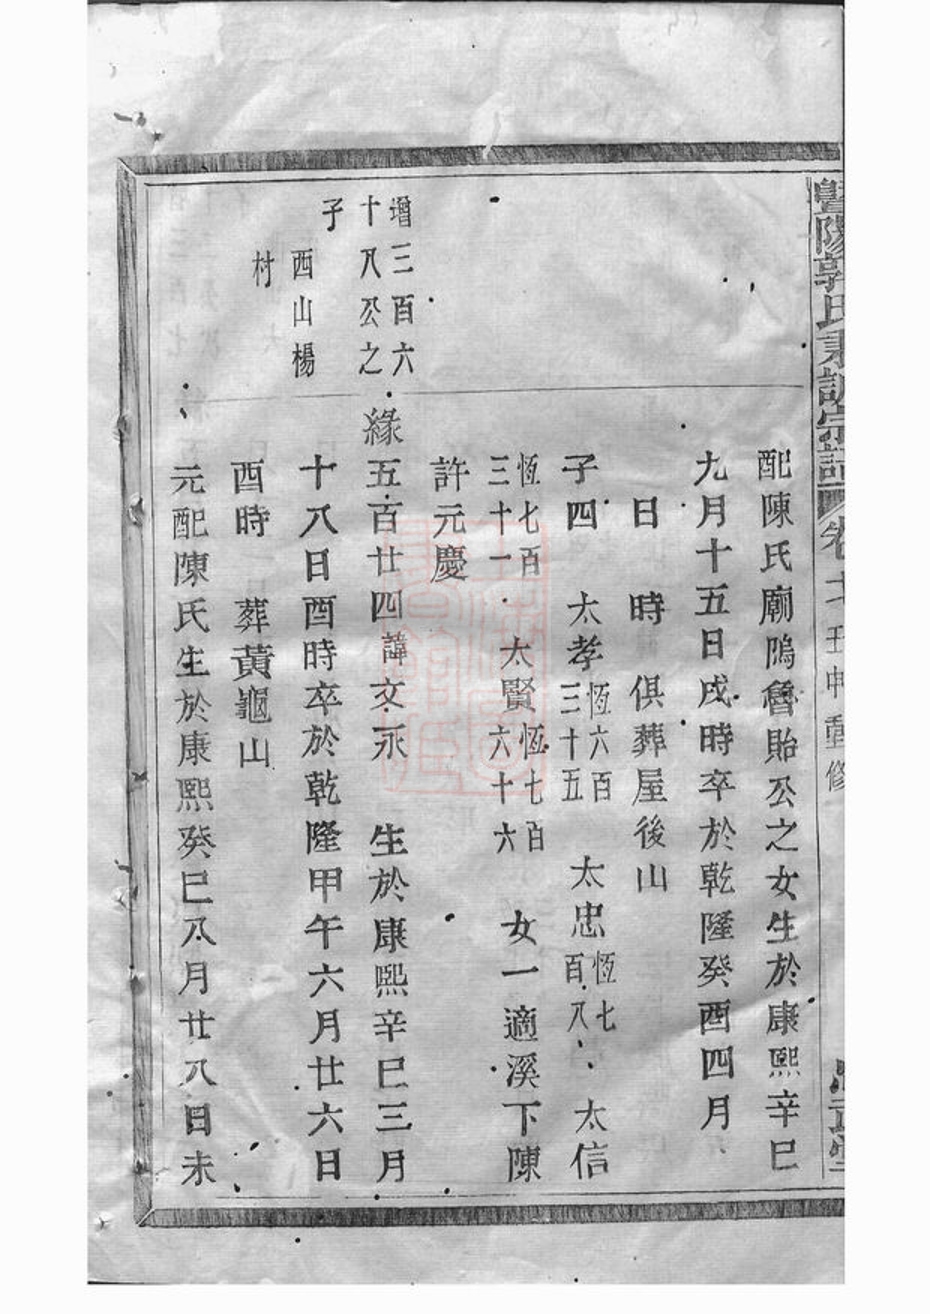 暨陽郭氏東訥宗譜 卷之七 壬申重修
配陳氏廟隖魯貽公之女生於康熙辛巳
九月十五日戌時卒於乾隆癸酉四月
日 時 俱葬屋後山
子四 太孝恆六百三十五 太忠恆七百八 太信
恆七百三十一 太賢恆七百六十六 女一適溪下陳
許元慶
增三百六十八公之子 西山楊村
緣五百廿四諱文永 生於康熙辛巳三月
十八日酉時卒於乾隆甲午六月廿六日
酉時 葬黃龜山
元配陳氏生於康熙癸巳八月廿八日未